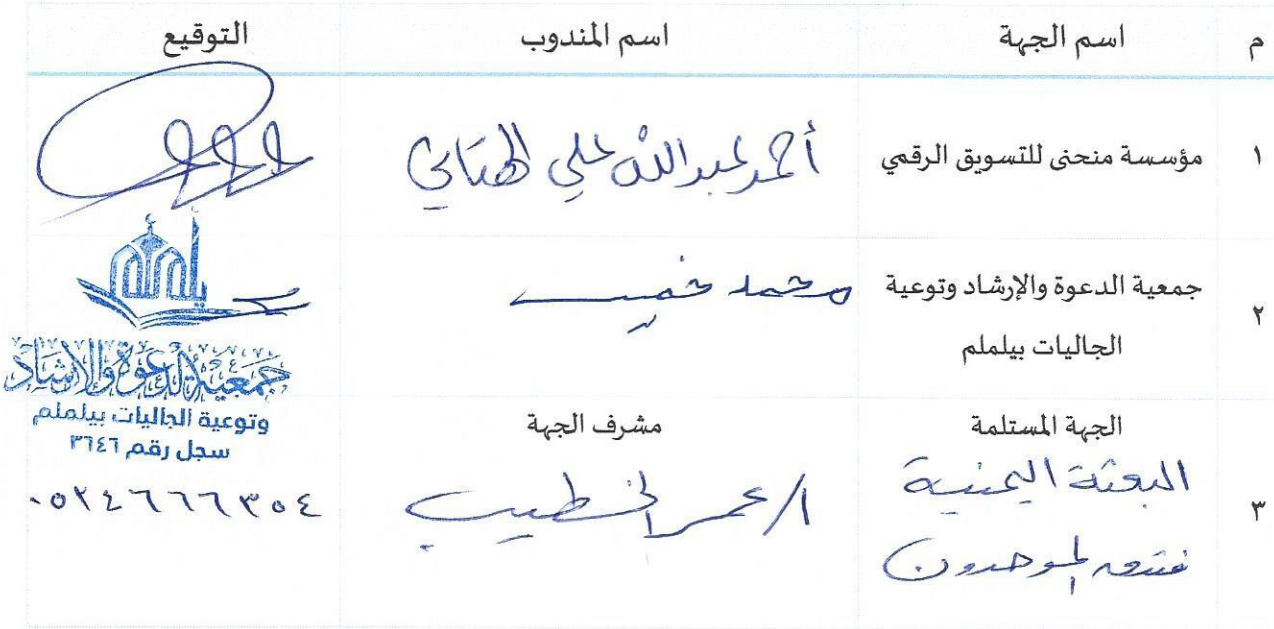 م اسم الجهة اسم المندوب التوقيع
١ مؤسسة منحنى للتسويق الرقمي أحمد عبدالله علي الهتاري
٢ جمعية الدعوة والإرشاد وتوعية محمد خميس
الجاليات بيلملم
جمعية الدعوة والإرشاد
وتوعية الجاليات بيلملم
سجل رقم ٣٦٤٦
الجهة المستلمة مشرف الجهة
٣ البعثة اليمنية أ/عمر الخطيب ٠٥٢٤٦٦٦٣٥٤
الموحدون